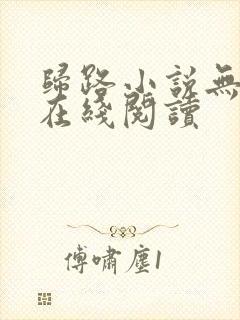 歸路小說無
在綫閱讀
傅嘯塵1